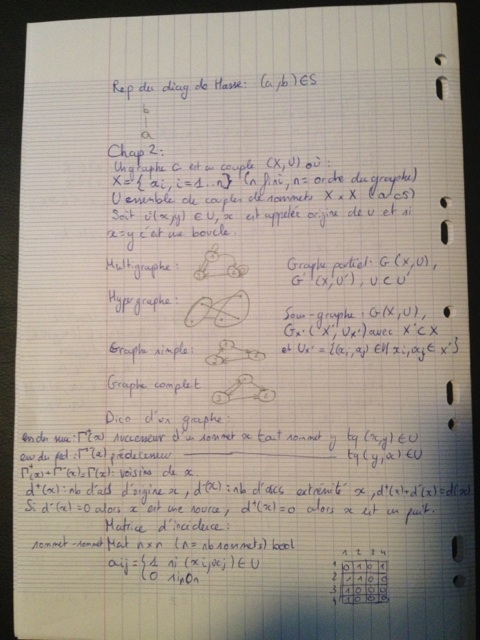 Rep du diag de Hasse: (a,b) ∈ S
b
a
Chap 2:
Un graphe G est un couple (X,U) où:
X = { xi, i = 1..n} (n fini, n = ordre du graphe)
U ensemble de couples de sommets X x X (arcs)
Soit u(x,y) ∈ U, x est appelée origine de u et si
x=y c'est une boucle.
Multigraphe:
Graphe partiel: G(X,U),
G'(X,U'), U C U'
Hypergraphe:
Sous-graphe: G(X,U),
Gx'(X', Ux') avec X' C X
et Ux' = {(xi, xj) ∈ U | xi, xj ∈ X'}
Graphe simple:
Graphe complet
Dico d'un graphe:
Γ+(x) successeur d'un sommet x tout sommet y tq (x,y) ∈ U
Γ-(x) prédécesseur tq (y,x) ∈ U
Γ+(x)+Γ-(x)=Γ(x): voisins de x.
d+(x) = nb d'arcs d'origine x, d-(x) = nb d'arcs extrémité x, d+(x)+d-(x)=d(x)
Si d-(x)=0 alors x est une source, d+(x)=0 alors x est un puit.
Matrice d'incidence:
sommet-sommet Mat n x n (n = nb sommets) bool
aij = { 1 si (xi,xj) ∈ U
0 sinon
1 2 3 4
1 0 1 0 1
2 1 1 0 0
3
4